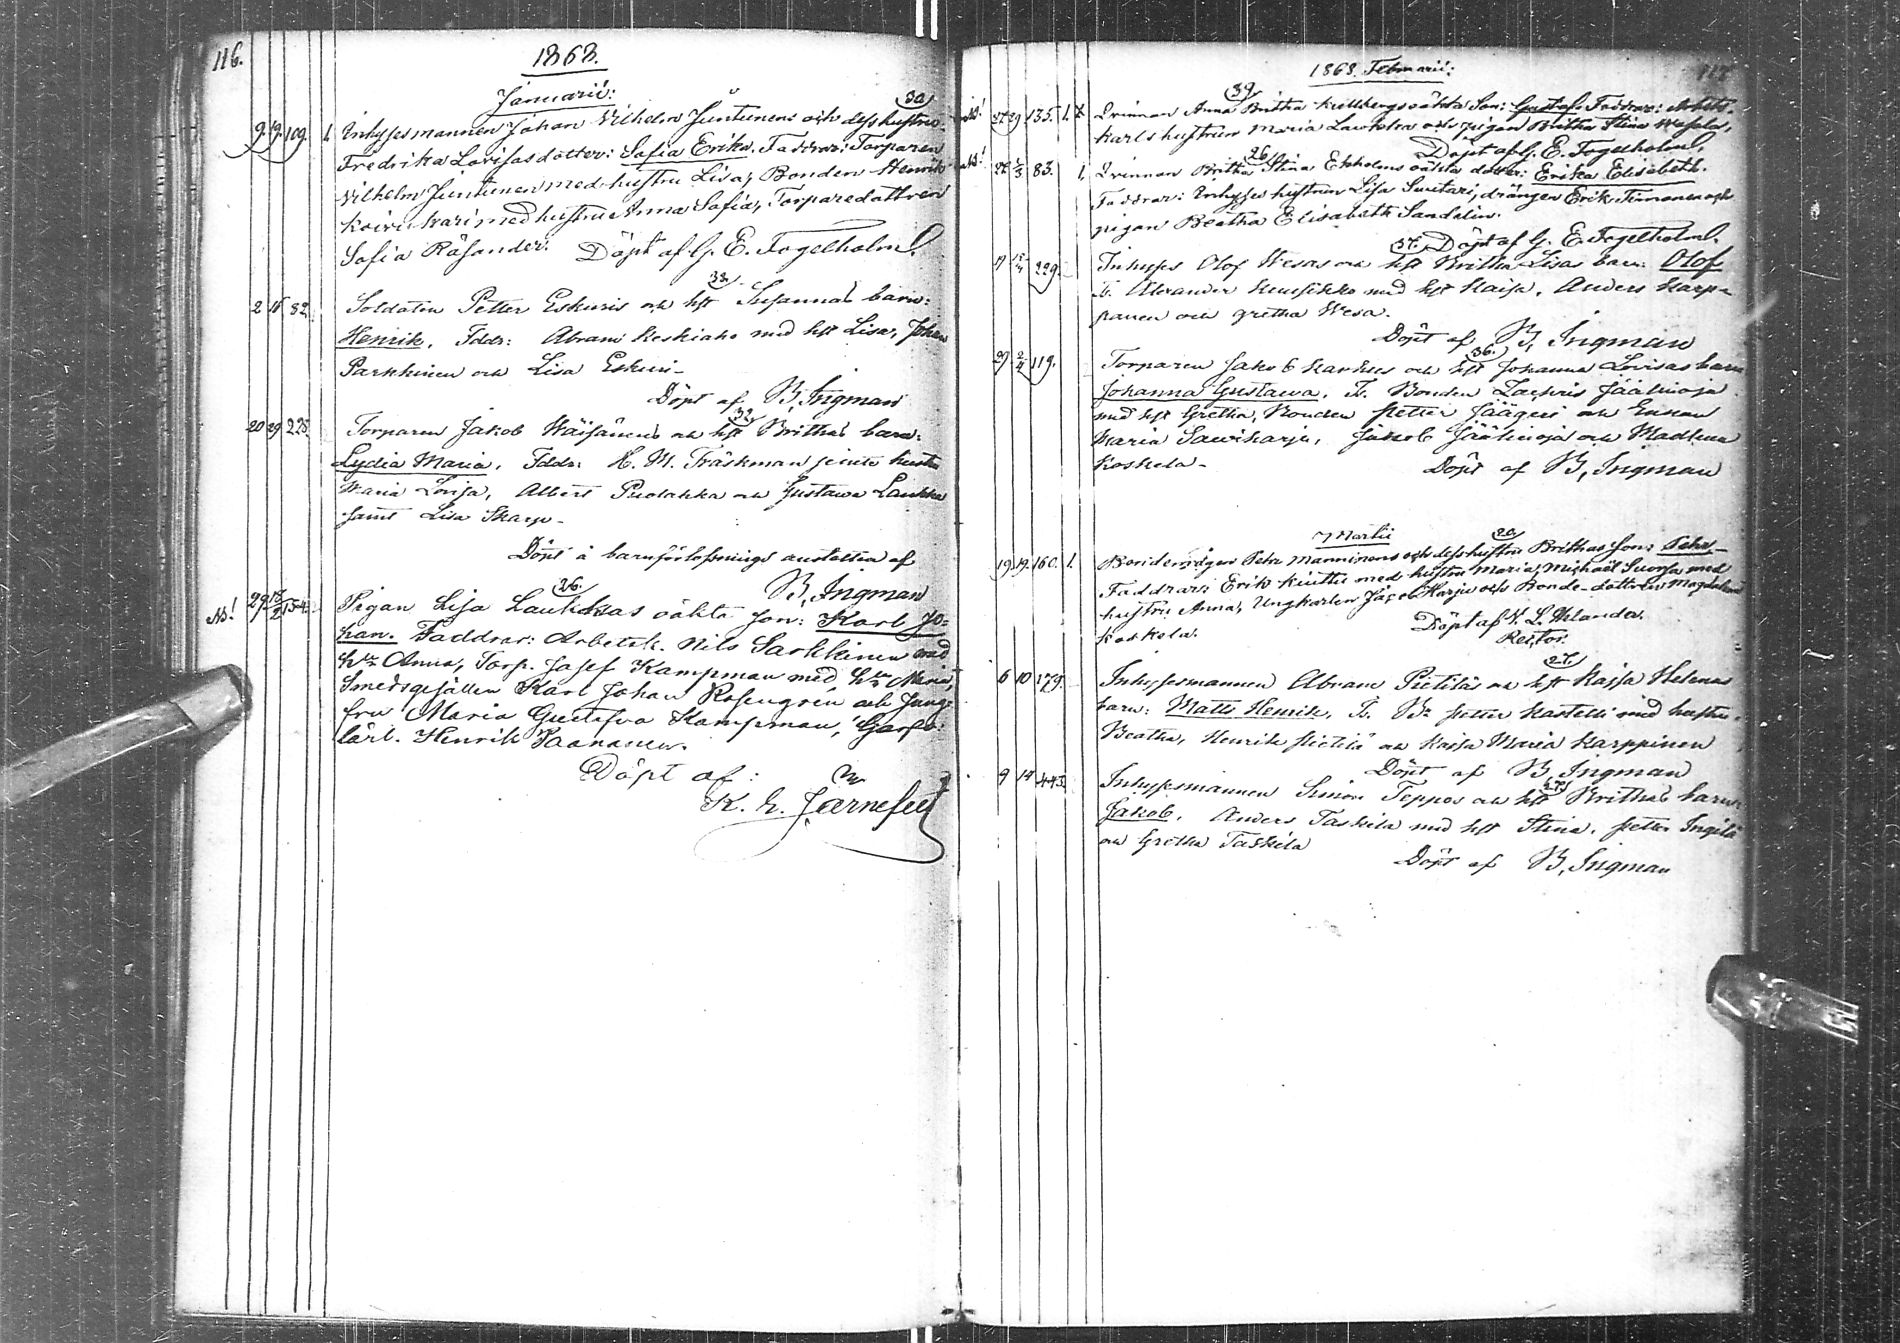 116.
1868.
Januarii:
30
9. 19. 109. 1. Inhysesmannen Johan Vilhelm Juntunens och dess hustru
Fredrika Lovisas dotter: Sofia Erika. Faddrar: Torparen
Vilhelm Juntunen med hustru Lisa, Bonden Henrik
Koivukari med hustru Anna Sofia, Torparedottren
Sofia Räsander. Döpt af G. E. Fogelholm.
33.
2 16 82. Soldaten Petter Eskuris och hst Susannas barn:
Henrik. Fddr: Abram Keskiaho med hst Lisa, Johan
Parkkinen och Lisa Eskuri
Döpt af B. Ingman
32
20 29 228. Torparen Jakob Wäisänens och hst Brithas barn:
Lydia Maria. Fddr: H. M. Träskman jemte hustru
Maria Lovisa, Albert Puolakka och Gustawa Laukka
samt Lisa Karju
Döpt å barnförlossnings anstalten af
B. Ingman
26.
NB! 29 18/2 154. Pigan Lisa Laukkas oäkta son: Karl Jo-
han. Faddrar: Arbetsk. Nils Sarkkinen med
h:u Anna, Torp. Josef Kampman med h:u Maria,
Smedsgesällen Karl Johan Rosengrén och Jung-
fru Maria Gustafva Kampman, Garf-
lärl. Henrik Paananen.
Döpt af:
K. H. Järnefelt
1868. Februarii:
117
39
NB! 27 29 135. 1. Qvinnan Anna Britha Kullbergs oäkta Son: Gustaf. Faddrar: Arbets-
karlshustrun Maria Lawikka och pigan Britha Stina Wasala.
Döpt af G. E. Fogelholm.
26
NB! 22 1/3 83. 1. Qvinnan Britha Stina Ekholms oäkta dotter: Erika Elisabeth.
Faddrar: Inhyses hustrun Lisa Suutari, drängen Erik Timonen och
pigan Beatha Elisabeth Sandelin.
Döpt af G. E. Fogelholm.
37.
17 12/4 229 Inhyses Olof Wesas och hst Britha Lisas barn: Olof
F. Alexander Kuusikko med hst Kaisa, Anders Karp-
panen och Gretha Wesa.
Döpt af B. Ingman
36.
29 2/4 119. Torparen Jakob Karhus och hst Johanna Lovisas barn
Johanna Gustawa. F. Bonden Zachris Jäälinoja
med hst Gretha, Bonden Petter Jäägeri och Enkan
Maria Sawiharju, Jakob Jäälinoja och Madlena
Koskela
Döpt af B. Ingman
Martii
20
19 19. 160. 1. Bondemågen Petr Manninens och dess hustru Brithas son: Petr
Faddrar: Erik Kinttu med hustru Maria, Michael Suorsa med
hustru Anna, Ungkarlen Jacob Harju och Bonde-dottren Magdalena
Koskela.
Döpt af V. L. Helander.
Rector.
27.
6 10 179. Inhysesmannen Abram Pietiläs och hst Kajsa Helenas
barn: Matts Henrik. F. B:n Petter Kastelli med hustru
Beatha, Henrik Pietilä och Kaisa Maria Karppinen
Döpt af B. Ingman
27
9 14 443. Inhysesmannen Simon Teppos och hst Brithas barn:
Jakob. Anders Taskila med hst Stina, Petter Ingilä
och Gretha Taskila
Döpt af B. Ingman